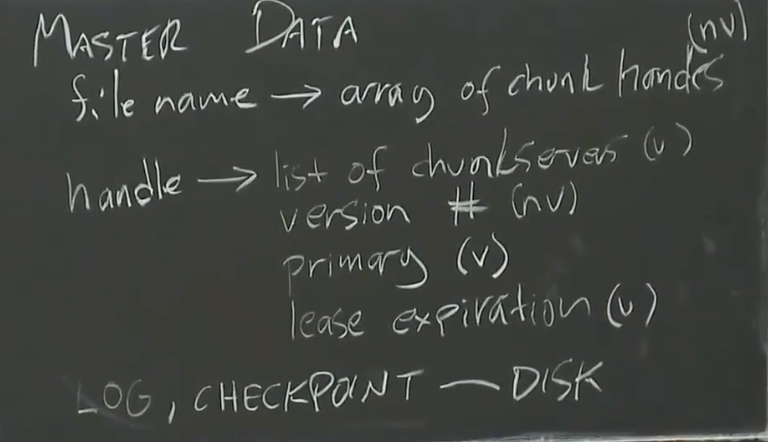 MASTER DATA
(nv)
file name → array of chunk handes
handle → list of chunkservers (v)
version # (nv)
primary (v)
lease expiration (v)
LOG, CHECKPOINT — DISK